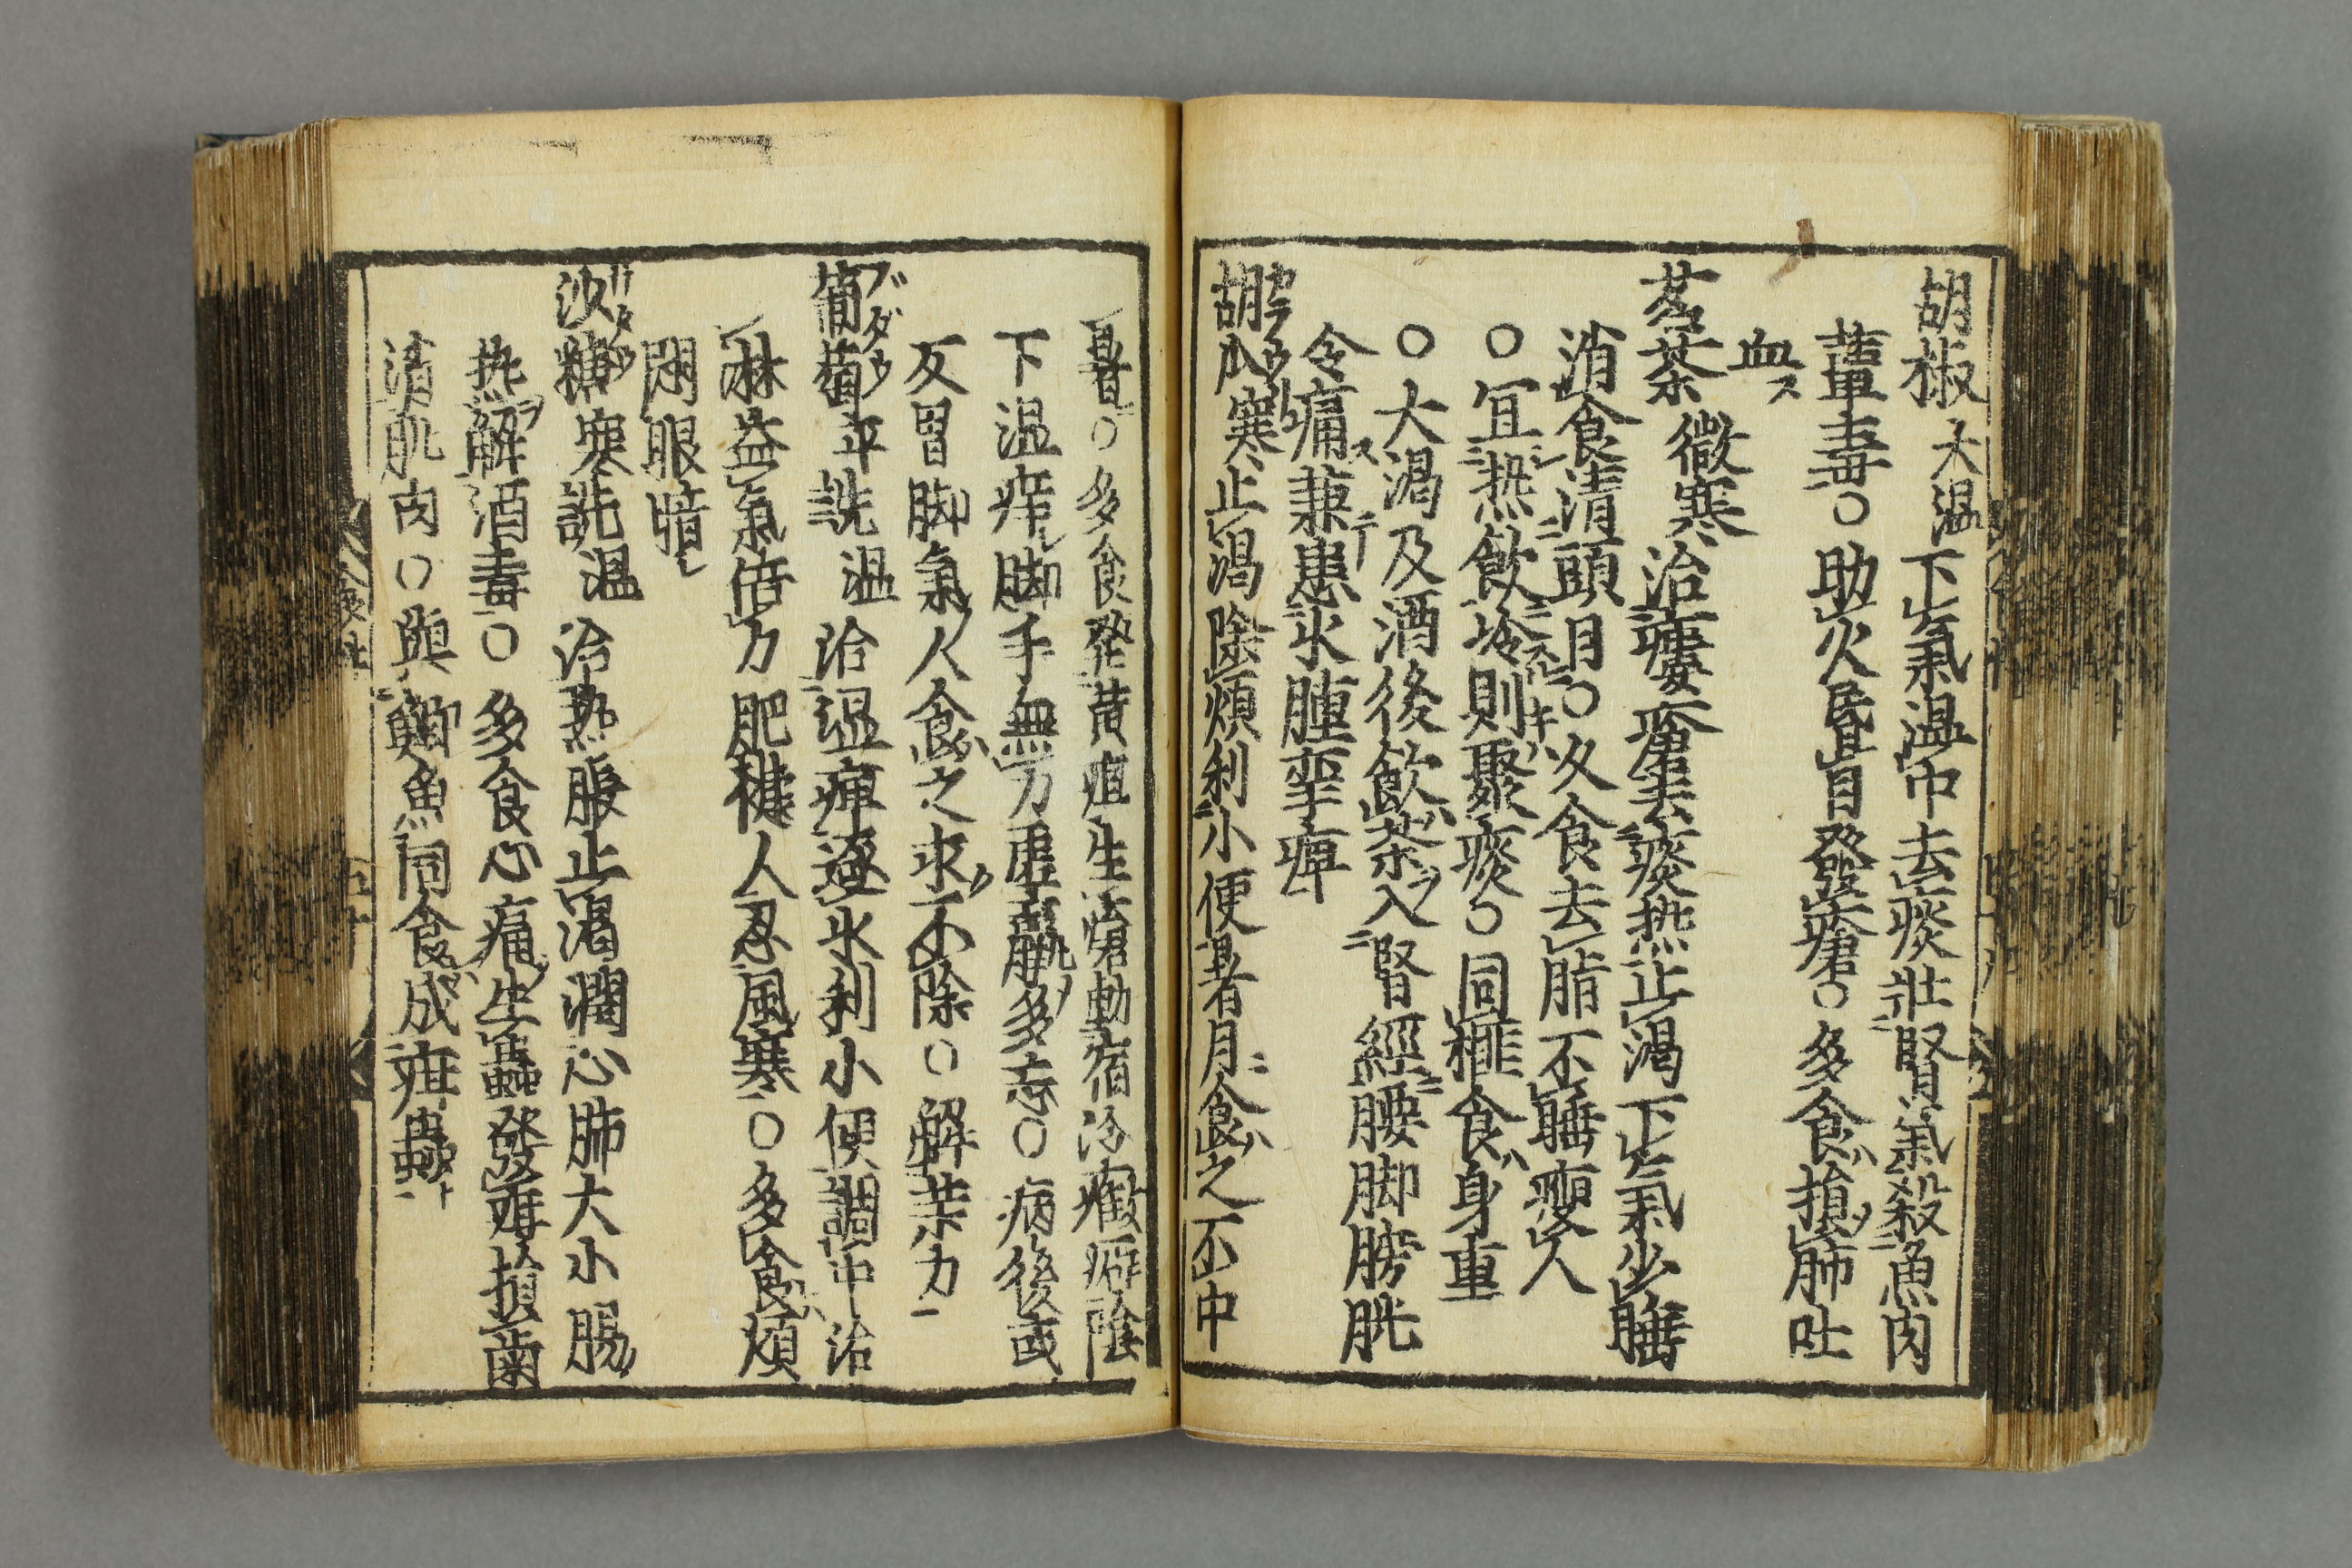 胡椒 大温 下氣温中去痰壯腎氣殺魚肉
蕈毒○助火昏目發瘡○多食ハ損メ肺吐
血ス
茗茶 微寒 治瘻瘡去痰熱止渇下氣少睡
消食清頭目○久食去脂不睡瘦人
○宜熱飲冷則聚痰○同榧食ハ身重
○大渇及酒後飲ハ茶入腎經腰脚膀胱
令痛ス兼患水腫攣痺
胡瓜 寒 止渇除煩利小便暑月食ハ之不中
暑○多食発黄疸生瘡動宿冷癥癖陰
下湿痒脚手無力虚羸多忘○病後或
反胃脚氣ノ人食ハ之永ク不除○解茶力
葡萄 ブダウ 平 説温 治湿痺逐水利小便調中治
淋益氣倍力肥健人忍風寒○多食ハ煩
悶眼暗シ
沙糖 サタウ 寒 説温 治熱脹止渇潤心肺大小腸
热解酒毒○多食心痛生蟲發疳損齒
消肌肉○與鯽魚同食ハ成疳蟲